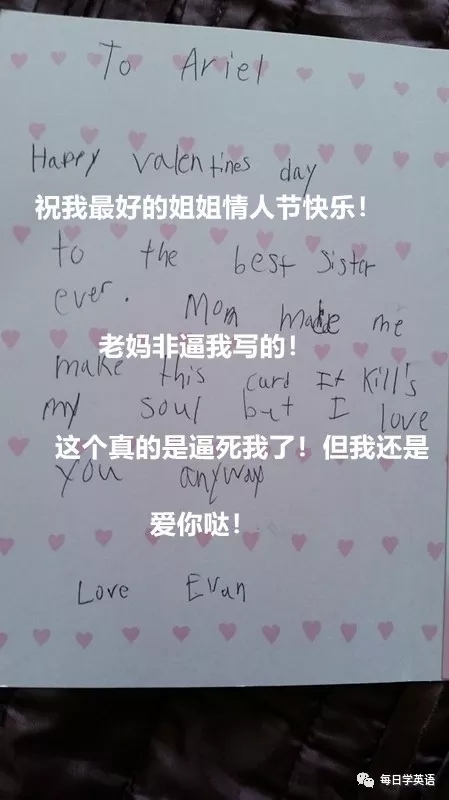 To Ariel
Happy valentines day
祝我最好的姐姐情人节快乐！
to the best Sister
ever. Mom made me
老妈非逼我写的！
make this card It Kill's
my soul but I love
这个真的是逼死我了！但我还是
you anyway
爱你哒！
Love Evan
每日学英语